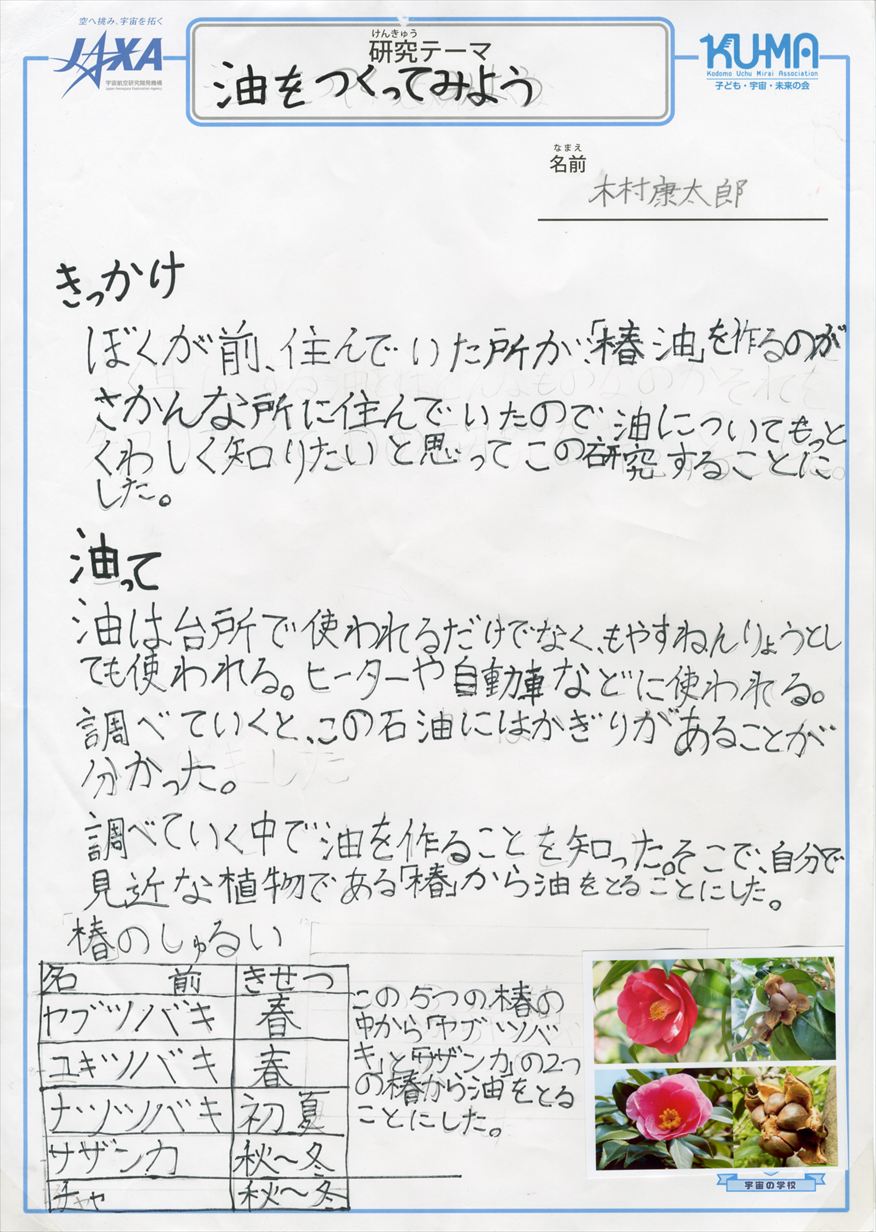 空へ挑み、宇宙を拓く
JAXA
宇宙航空研究開発機構
Japan Aerospace Exploration Agency
けんきゅう
研究テーマ
油をつくってみよう
KU-MA
Kodomo Uchu Mirai Association
子ども・宇宙・未来の会
なまえ
名前
木村康太郎
きっかけ
ぼくが前、住んでいた所が、「椿油」を作るのが
さかんな所に住んでいたので、油についてもっと
くわしく知りたいと思ってこの研究することに
した。
油って
油は台所で使われるだけでなく、もやすねんりょうとし
ても使われる。ヒーターや自動車などに使われる。
調べていくと、この石油にはかぎりがあることが
分かった。
調べていく中で油を作ることを知った。そこで、自分で
見近な植物である「椿」から油をとることにした。
「椿」のしゅるい
名前 きせつ
ヤブツバキ 春
ユキツバキ 春
ナツツバキ 初夏
サザンカ 秋〜冬
チャ 秋〜冬
この5つの椿の
中から「ヤブツバ
キ」と「サザンカ」の2つ
の椿から油をとる
ことにした。
宇宙の学校